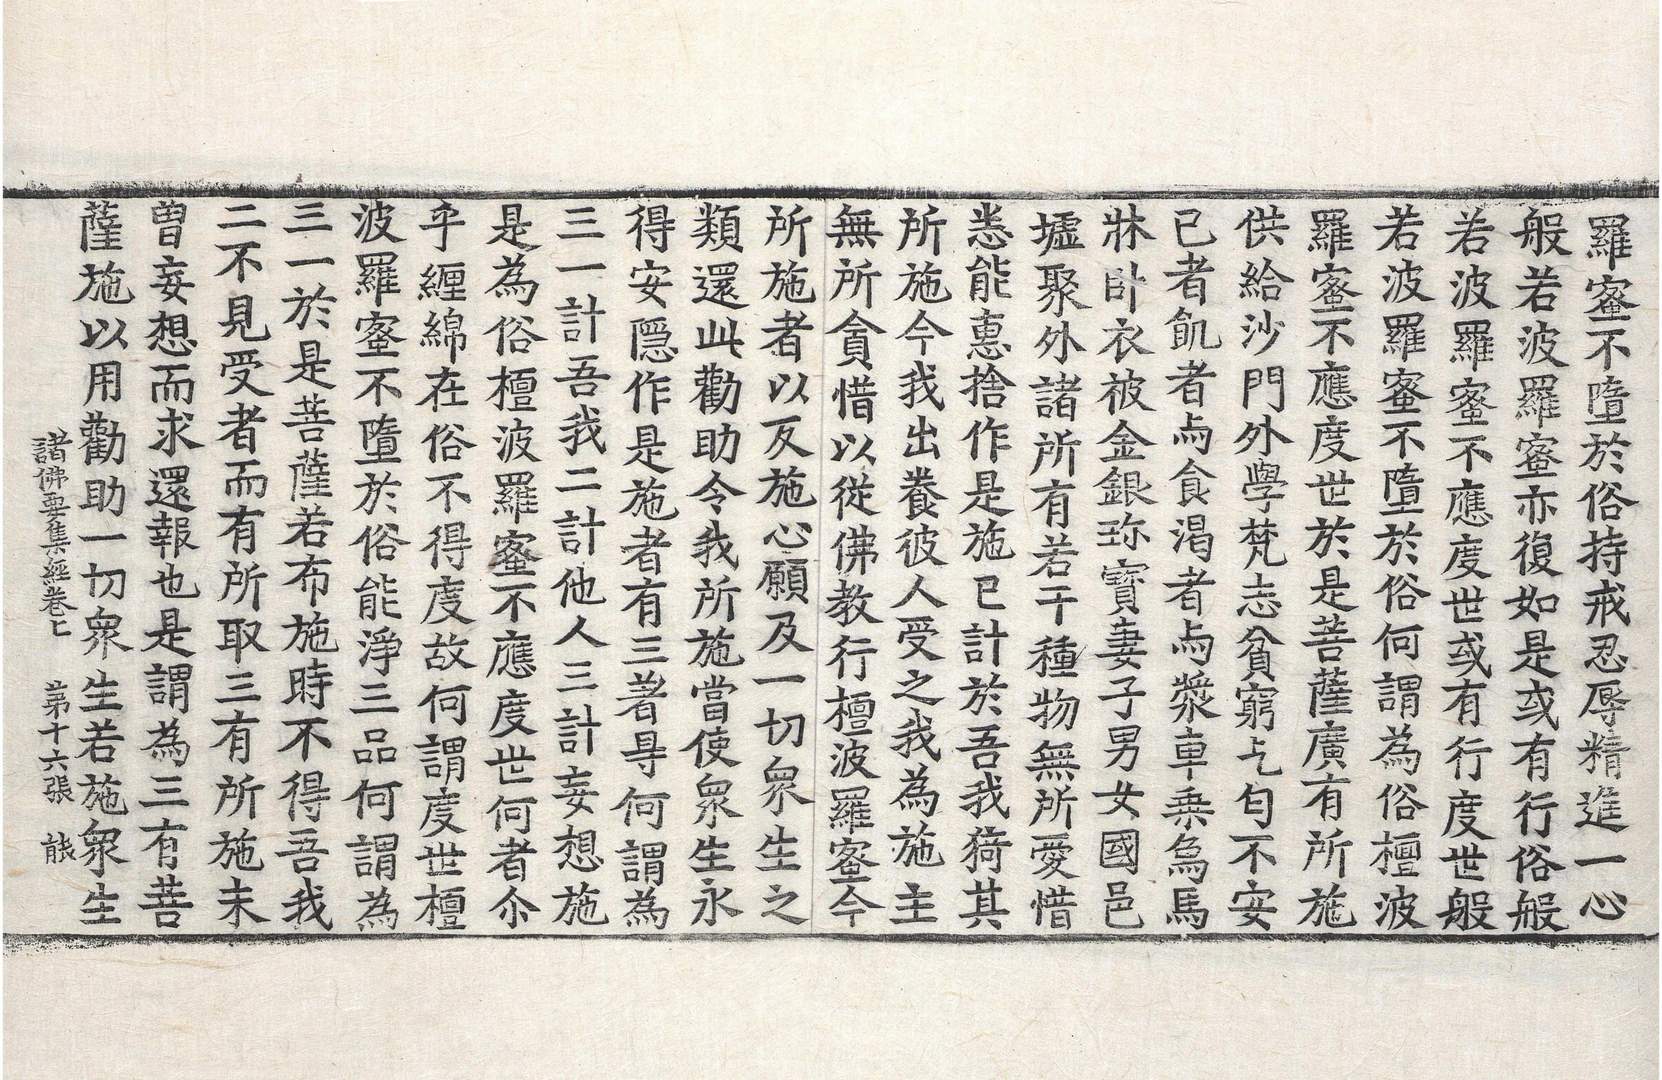 羅蜜不墮於俗持戒忍辱精進一心
般若波羅蜜亦復如是或有行俗般
若波羅蜜不應度世或有行度世般
若波羅蜜不墮於俗何謂為俗檀波
羅蜜不應度世於是菩薩廣有所施
供給沙門外學梵志貧窮乞匂不安
已者飢者与食渴者与漿車乗為馬
牀卧衣被金銀珎寶妻子男女國邑
墟聚外諸所有若干種物無所愛惜
悉能惠捨作是施已計於吾我猗其
所施今我出養彼人受之我為施主
無所貪惜以從佛教行檀波羅蜜今
所施者以反施心願及一切衆生之
類還此勸助令我所施當使衆生永
得安隱作是施者有三著㝵何謂為
三一計吾我二計他人三計妄想施
是為俗檀波羅蜜不應度世何者尒
乎纏綿在俗不得度故何謂度世檀
波羅蜜不墮於俗能淨三品何謂為
三一於是菩薩若布施時不得吾我
二不見受者而有所取三有所施未
曽妄想而求還報也是謂為三有菩
薩施以用勸助一切衆生若施衆生
諸佛要集經卷上 第十六張 能